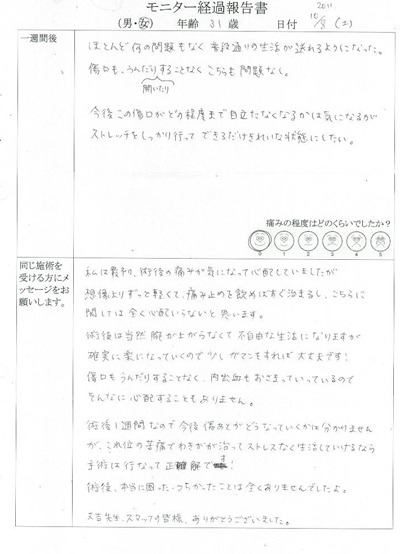 モニター経過報告書
(男・女) 年齢 31 歳 日付 2011 10/8 (土)
一週間後
ほとんど何の問題もなく普段通りの生活が送れるようになった。
傷口も、うんだりすることなくこちらも問題なし。
開いたり
今後この傷口がどの程度まで目立たなくなるかは気になるが
ストレッチをしっかり行ってできるだけきれいな状態にしたい。
痛みの程度はどのくらいでしたか?
0 1 2 3 4 5
同じ施術を
受ける方にメ
ッセージをお
願いします。
私は最初、術後の痛みが気になって心配していましたが
想像よりずっと軽くて、痛み止めを飲めばすぐ治まるし、こちらに
関しては全く心配いらないと思います。
術後は当然腕が上がらなくて不自由な生活になりますが
確実に楽になっていくので少しガマンをすれば大丈夫です!
傷口もうんだりすることなく、内出血もおさまっていっているので
そんなに心配することもありません。
術後1週間なので今後傷あとがどうなっていくかは分かりません
が、これ位の苦痛でわきがが治ってストレスなく生活していけるなら
手術は行なって正解です!
術後、本当に困った・つらかったことは全くありませんでしたよ。
先生、スタッフの皆様、ありがとうございました。